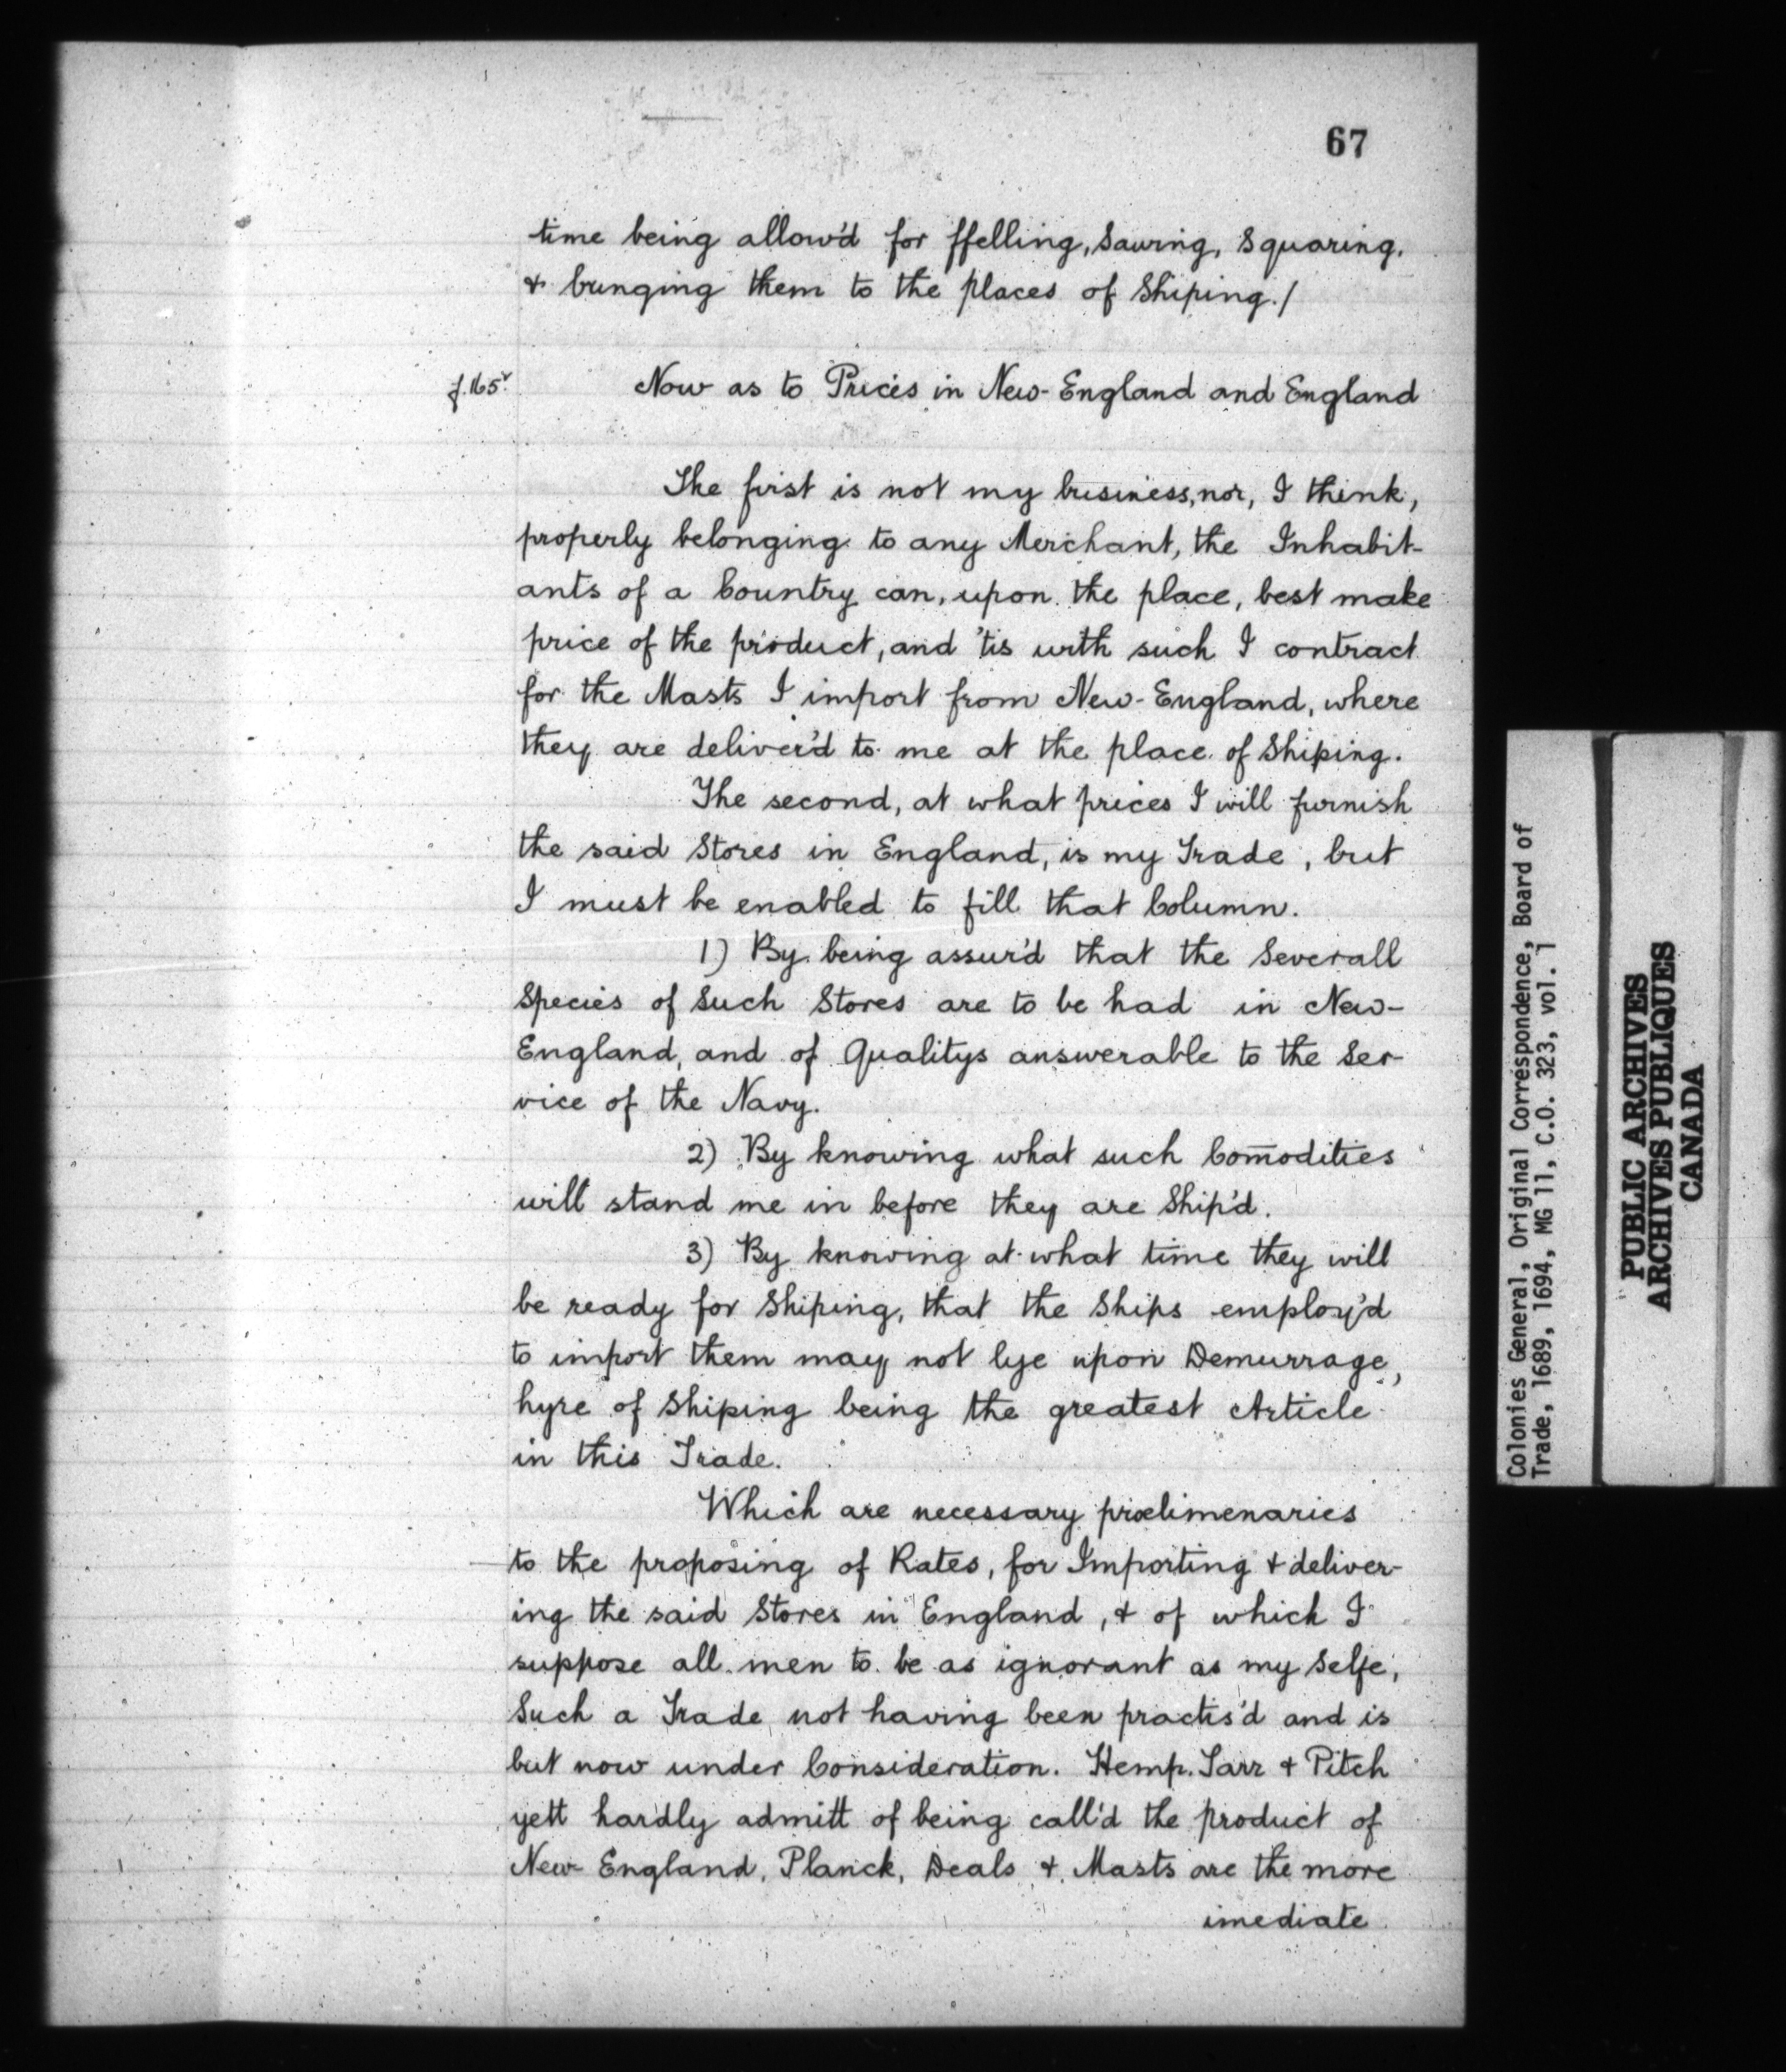 67
time being allow'd for ffelling, Sawing, Squaring,
& bringing them to the places of Shiping./
f.165v.
Now as to Prices in New-England and England
The first is not my business, nor, I think,
properly belonging to any Merchant, the Inhabit-
ants of a Country can, upon the place, best make
price of the product, and 'tis with such I contract
for the Masts I import from New-England, where
they are deliver'd to me at the place of Shiping.
The second, at what prices I will furnish
the said Stores in England, is my Trade, but
I must be enabled to fill that Column.
1) By being assur'd that the Severall
Species of Such Stores are to be had in New-
England, and of Qualitys answerable to the Ser-
vice of the Navy.
2) By knowing what such Com̄odities
will stand me in before they are Ship'd.
3) By knowing at what time they will
be ready for Shiping, that the Ships employ'd
to import them may not lye upon Demurrage,
hyre of Shiping being the greatest Article
in this Trade.
Which are necessary prælimenaries
to the proposing of Rates, for Importing & deliver-
ing the said Stores in England, & of which I
suppose all men to be as ignorant as my Selfe,
Such a Trade not having been practis'd and is
but now under Consideration. Hemp. Tarr & Pitch
yett hardly admitt of being call'd the product of
New England, Planck, Deals & Masts are the more
imediate
Colonies General, Original Correspondence, Board of
Trade, 1689, 1694, MG 11, C.O. 323, vol. 1
PUBLIC ARCHIVES
ARCHIVES PUBLIQUES
CANADA